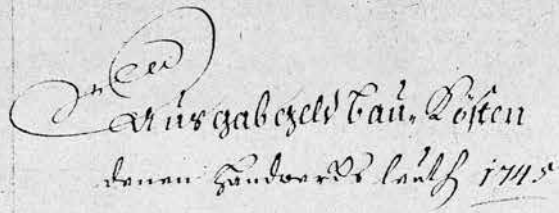 Ausgabgeld bau Kösten
denen Handwerks leuth 1745